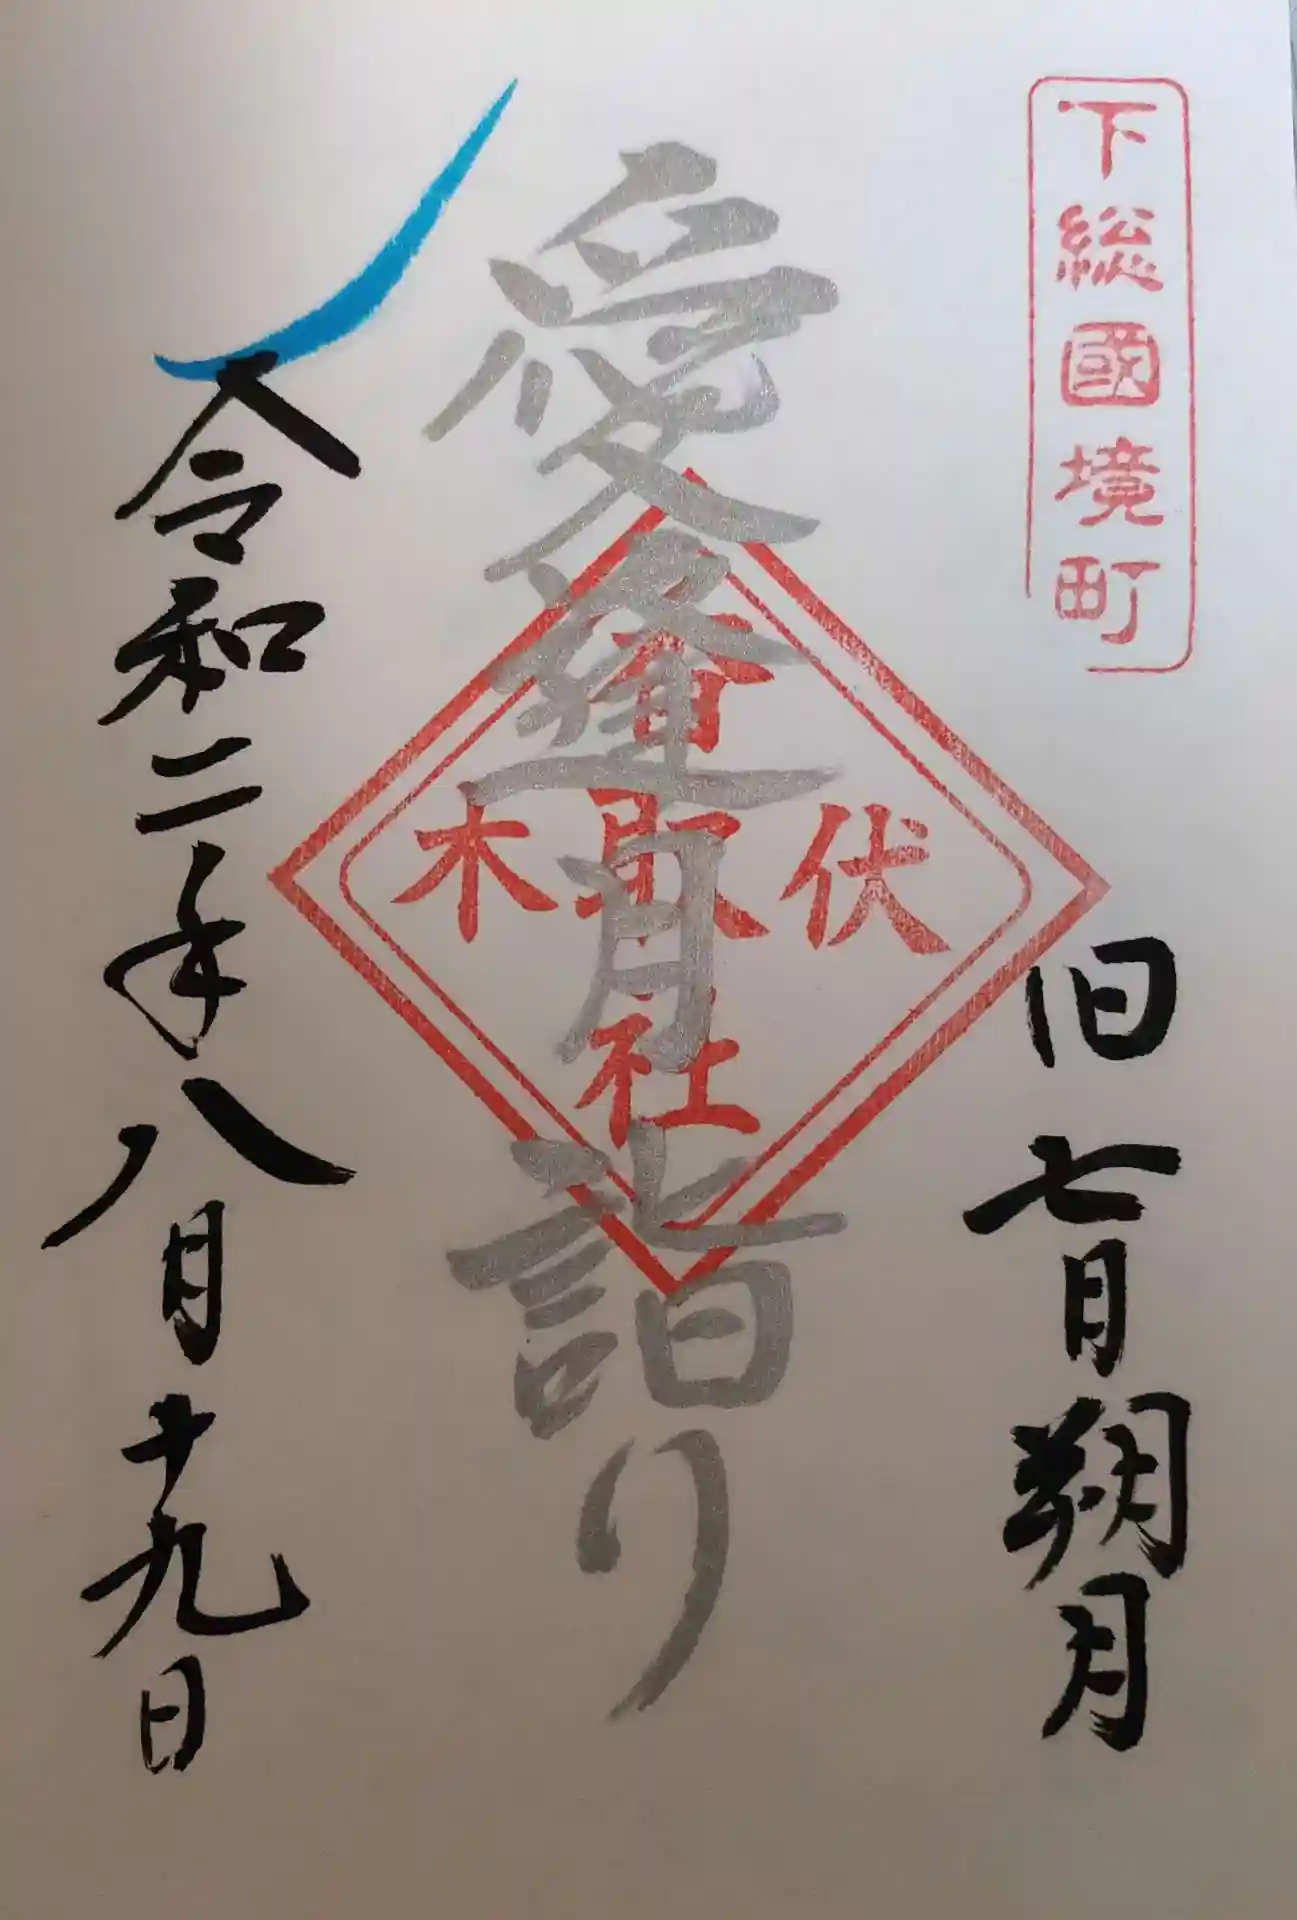 下総國境町
旧七月朔月
愛逢月詣り
香取社
伏木
令和二年八月十九日